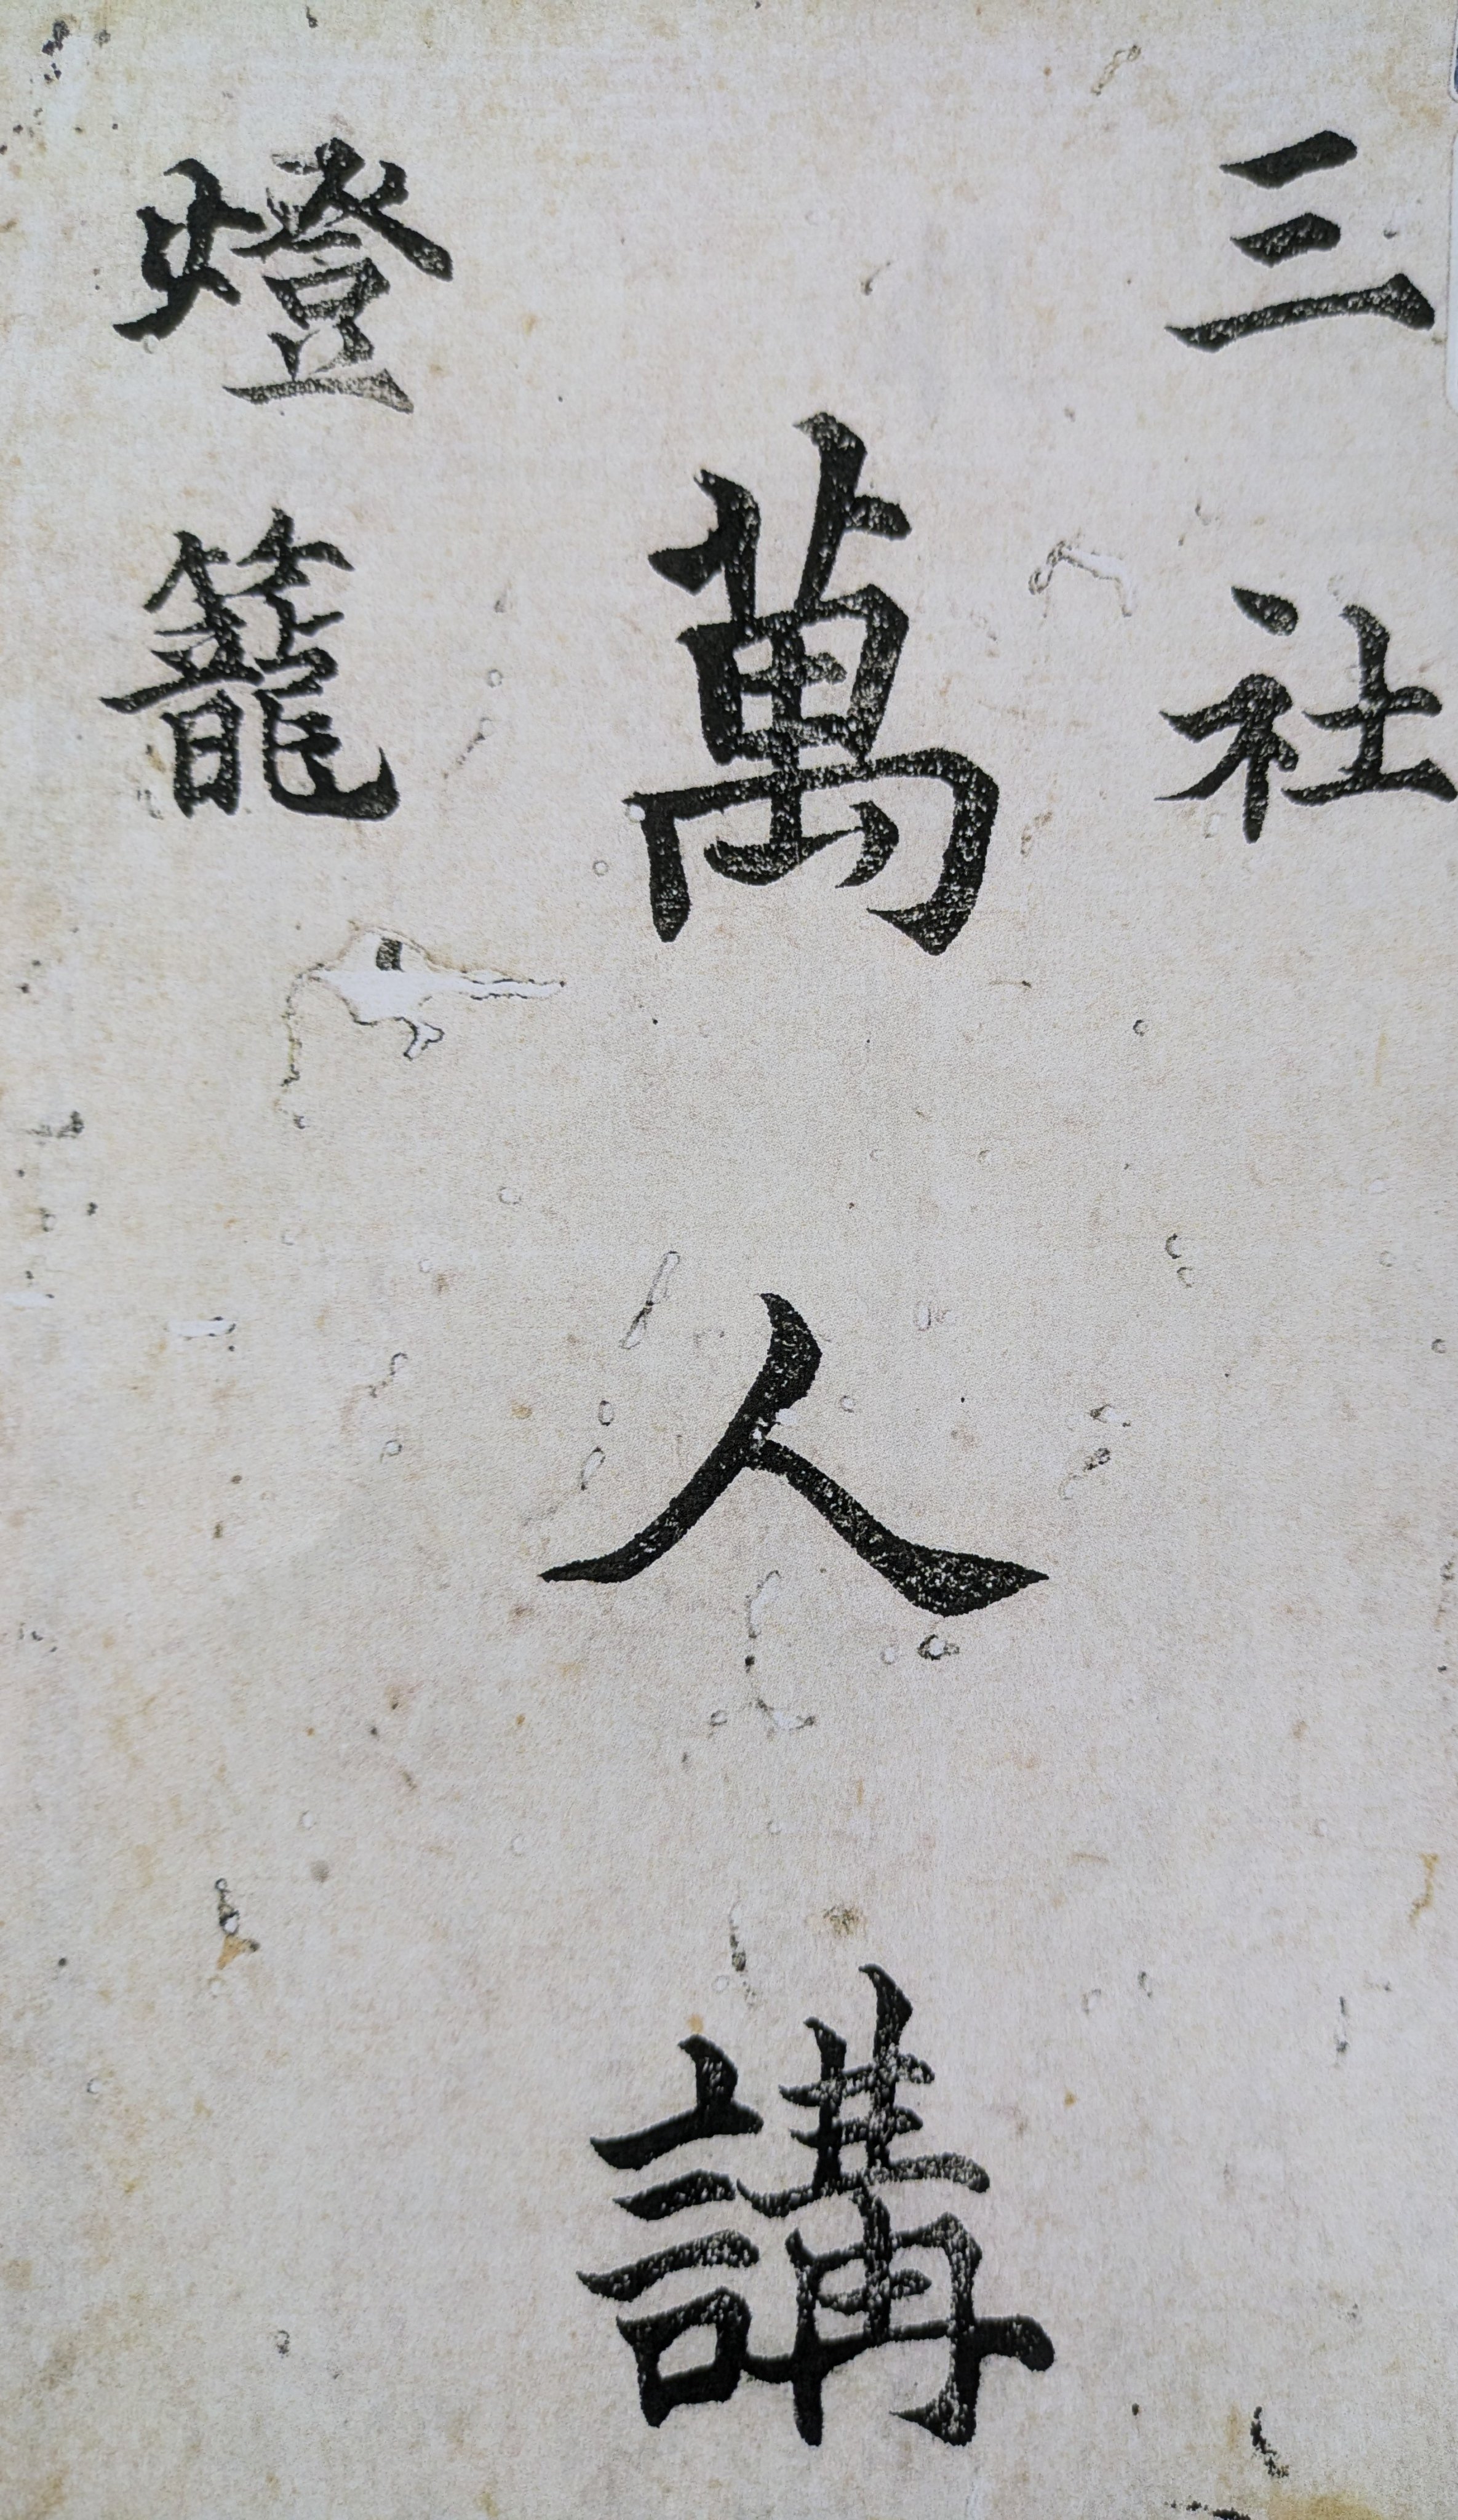 三社
燈籠
萬人講